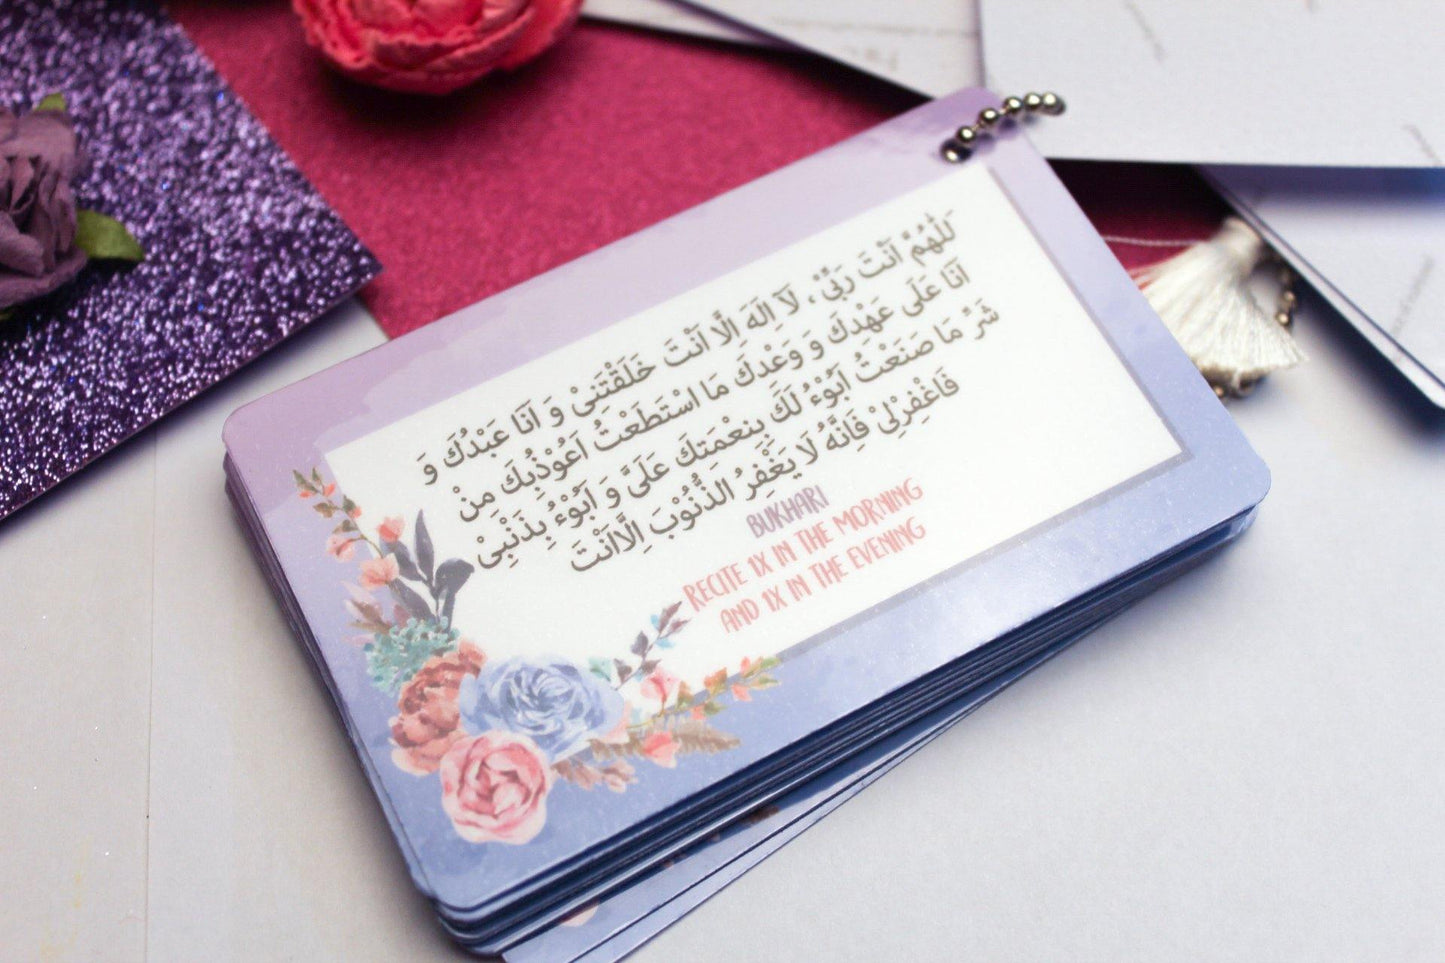 اَللّٰهُمَّ اَنْتَ رَبِّيْ، لَآ اِلٰهَ اِلَّا اَنْتَ خَلَقْتَنِىْ وَ اَنَا عَبْدُكَ وَ
اَنَا عَلٰى عَهْدِكَ وَ وَعْدِكَ مَا اسْتَطَعْتُ اَعُوْذُبِكَ مِنْ
شَرِّ مَا صَنَعْتُ اَبُوْءُ لَكَ بِنِعْمَتِكَ عَلَىَّ وَ اَبُوْءُ بِذَنْبِىْ
فَاغْفِرْلِىْ فَاِنَّهُ لَا يَغْفِرُ الذُّنُوْبَ اِلَّااَنْتَ
BUKHARI
RECITE 1X IN THE MORNING
AND 1X IN THE EVENING